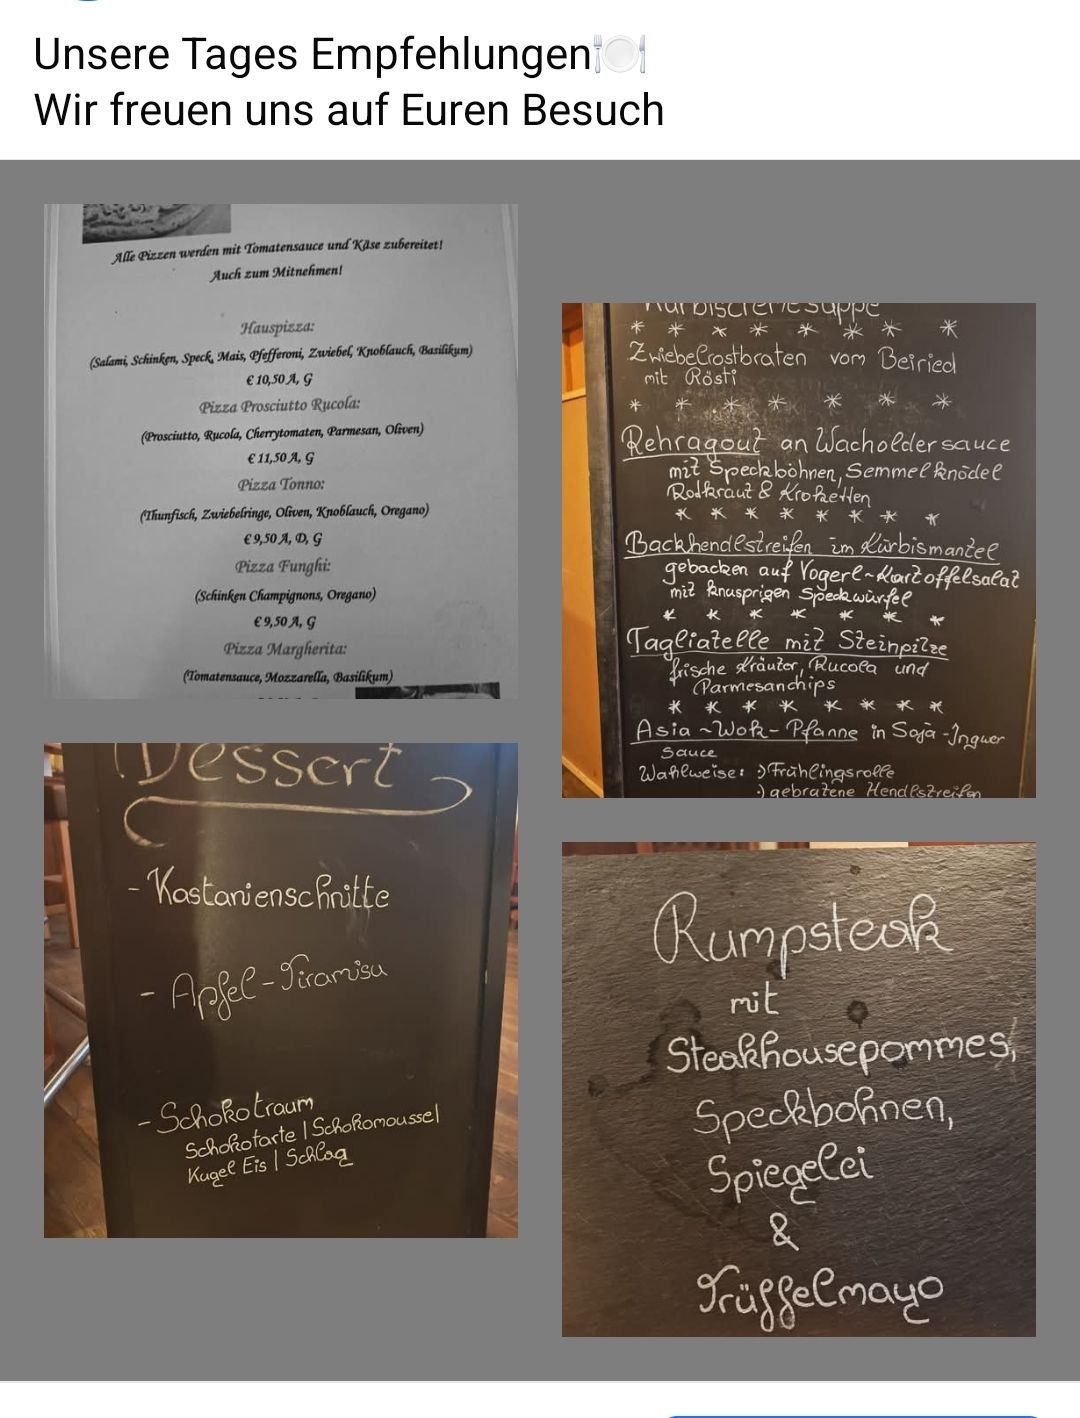 Unsere Tages Empfehlungen🍽
Wir freuen uns auf Euren Besuch
Alle Pizzen werden mit Tomatensauce und Käse zubereitet!
Auch zum Mitnehmen!
Hauspizza:
(Salami, Schinken, Speck, Mais, Pfefferoni, Zwiebel, Knoblauch, Basilikum)
€ 10,50 A, G
Pizza Prosciutto Rucola:
(Prosciutto, Rucola, Cherrytomaten, Parmesan, Oliven)
€ 11,50 A, G
Pizza Tonno:
(Thunfisch, Zwiebelringe, Oliven, Knoblauch, Oregano)
€ 9,50 A, D, G
Pizza Funghi:
(Schinken Champignons, Oregano)
€ 9,50 A, G
Pizza Margherita:
(Tomatensauce, Mozzarella, Basilikum)
Kürbiscremesuppe
* * * * * * * *
Zwiebelrostbraten vom Beiried
mit Rösti
* * * * * * *
Rehragout an Wacholdersauce
mit Speckbohnen, Semmelknödel
Rotkraut & Kroketten
* * * * * * *
Backhendlstreifen im Kürbismantel
gebacken auf Vogerl-Kartoffelsalat
mit knusprigen Speckwürfel
* * * * * * *
Tagliatelle mit Steinpilze
frische Kräuter, Rucola und
Parmesanchips
* * * * * * * *
Asia-Wok-Pfanne in Soja-Ingwer
Sauce
Wahlweise: :) Frühlingsrolle
:) gebratene Hendlstreifen
Dessert
- Kastanienschnitte
- Apfel-Tiramisu
- Schokotraum
Schokotarte | Schokomoussel
Kugel Eis | Schlag
Rumpsteak
mit
Steakhousepommes,
Speckbohnen,
Spiegelei
&
Trüffelmayo